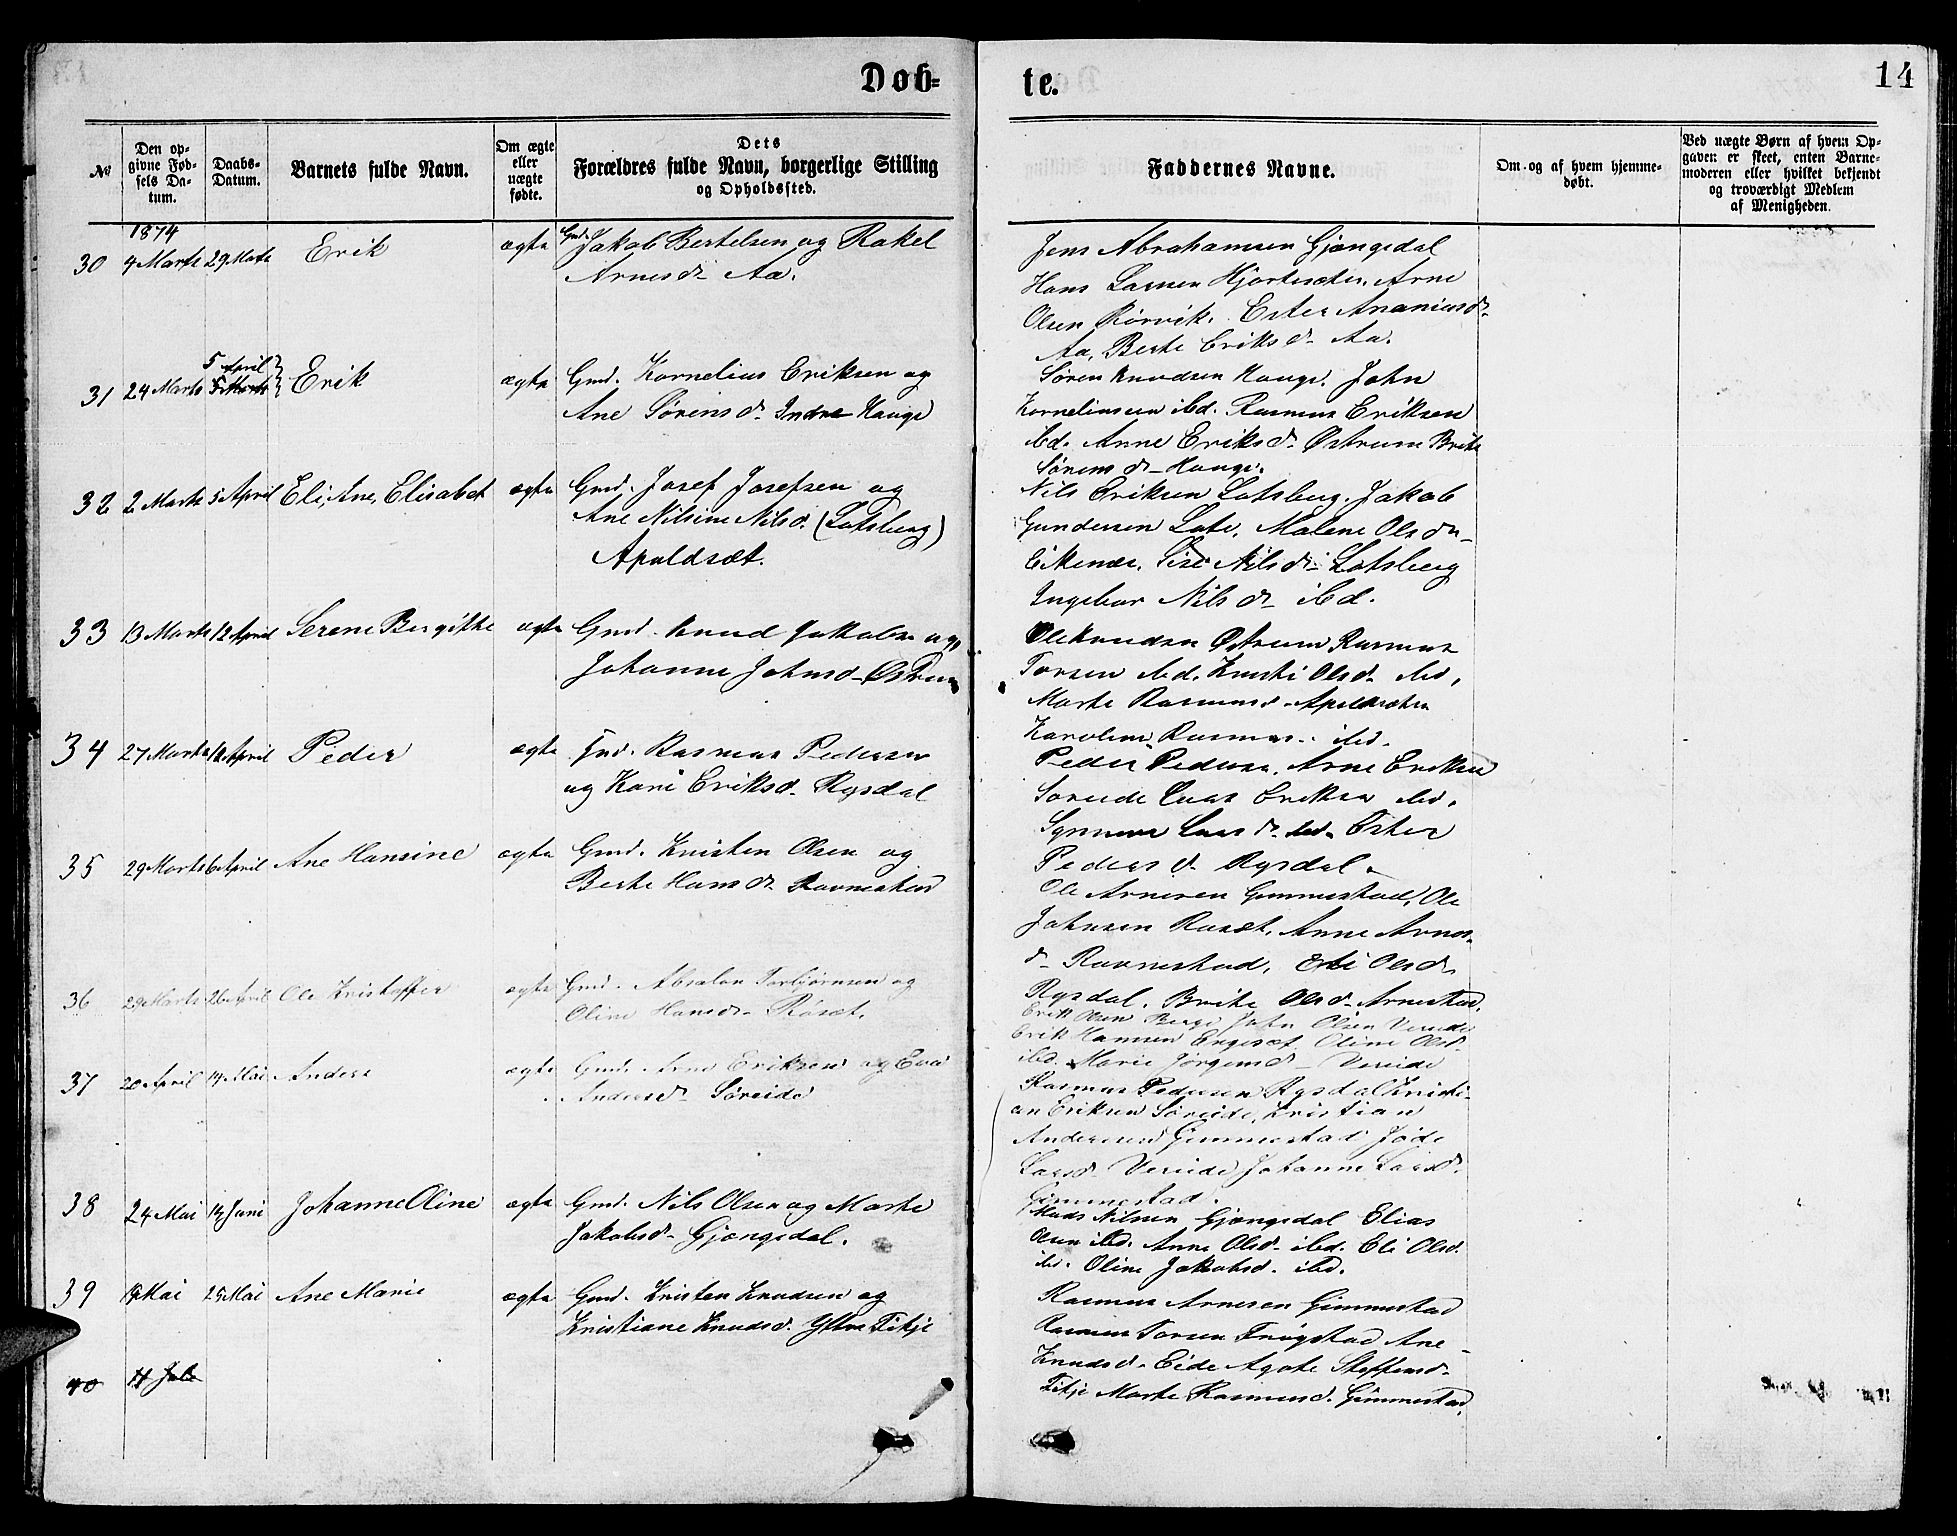 Døb- te. 14
No
Den op-
givne Fød-
sels Da-
tum.
Daabs-
Datum.
Barnets fulde Navn.
Om ægte
eller
uægte
fødte.
Dets
Forældres fulde Navn, borgerlige Stilling
og Opholdssted.
Faddernes Navne.
Om og af hvem hjemme-
døbt.
Ved uægte Børn af hvem Op-
gaven er skeet, enten Barne-
moderen eller hvilket bekjendt
og troværdigt Medlem
af Menigheden.
1874
30 4 Marts 29 Marts Erik ægte Gmd. Jakob Bertelsen og Rakel
Arnesd. Aa.
Jens Abrahamsen Gjengedal
Hans Larsen Hjortesæter. Arne
Olsen Rørvik. Ester Ananiasd.
Aa, Berte Eriksd. Aa.
5 April
31 24 Marts 5 Marts Erik ægte Gmd. Kornelius Eriksen og
Ane Sørensd. Indre Hauge
Søren Knudsen Hauge. John
Korneliussen ibd. Rasmus Eriksen
ibd. Anne Eriksd. Østrem Brite
Sørensd. Hauge.
32 2 Marts 5 April Eli, Ane, Elisabet ægte Gmd. Josef Josefsen og
Ane Nilsine Nilsd. (Lotsberg)
Apaldsæt.
Nils Eriksen Lotsberg. Jakob
Gundersen Lote. Malene Olsd.
Eikenæs. Lise Nilsd. Lotsberg
Ingebor Nilsd. ibd.
33 13 Marts 12 April Serene Bergitte ægte Gmd. Knud Jakobsen og
Johanne Johnsd. Østrem
Ole Knudsen Østrem Rasmus
Torsen ibd. Kristi Olsd. ibd.
Marte Rasmusd. Apaldsæter
Karoline Rasmus. ibd.
34 27 Marts 12 April Peder ægte Gmd. Rasmus Pedersen
og Kari Eriksd. Rygsdal
Peder Pedersen. Arne Eriksen
Soreide Lars Eriksen ibd.
Synneve Larsd. ibd. Ester
Pedersd. Rygsdal.
35 29 Marts 6 April Ane Hansine ægte Gmd. Kristen Olsen og
Berte Hansd. Ravnestad
Ole Arnesen Gimmestad, Ole
Johnsen Rosæt. Anne Arnes-
d. Ravnestad. Eli Olsd.
Rygsdal. Brite Olsd. Arnestad.
36 29 Marts 26 April Ole Kristoffer ægte Gmd. Absalon Torbjørnsen og
Oline Hansd. Røsæt.
Erik Olsen Berge John Olsen Vereide
Erik Hansen Engeset. Oline Olsd.
ibd. Marie Jørgensd. Vereide
37 20 April 14 Mai Anders ægte Gmd. Arne Eriksen og Eva
Andersd. Søreide
Rasmus Pedersen Rygsdal Kristi-
an Eriksen Søreide, Kristian
Andersen Gimmestad Jøde
Larsd. Vereide Johanne Larsd.
Gimmestad.
38 24 Mai 14 Juni Johanne Oline ægte Gmd. Nils Olsen og Marte
Jakobsd. Gjengedal.
Mads Nilsen Gjengedal Elias
Olsen ibd. Anne Olsd. ibd. Eli Olsd.
ibd. Oline Jakobsd. ibd.
39 Mai 25 Mai Ane Marie ægte Gmd. Kristen Knudsen og
Kristiane Knudsd. Yttre Fitje
Rasmus Arnesen Gimmestad
Rasmus Torsen Frøystad Ane
Knudsd. Eide Agate Steffensd.
Fitje Marte Rasmusd. Gimmestad.
40 11 Juli